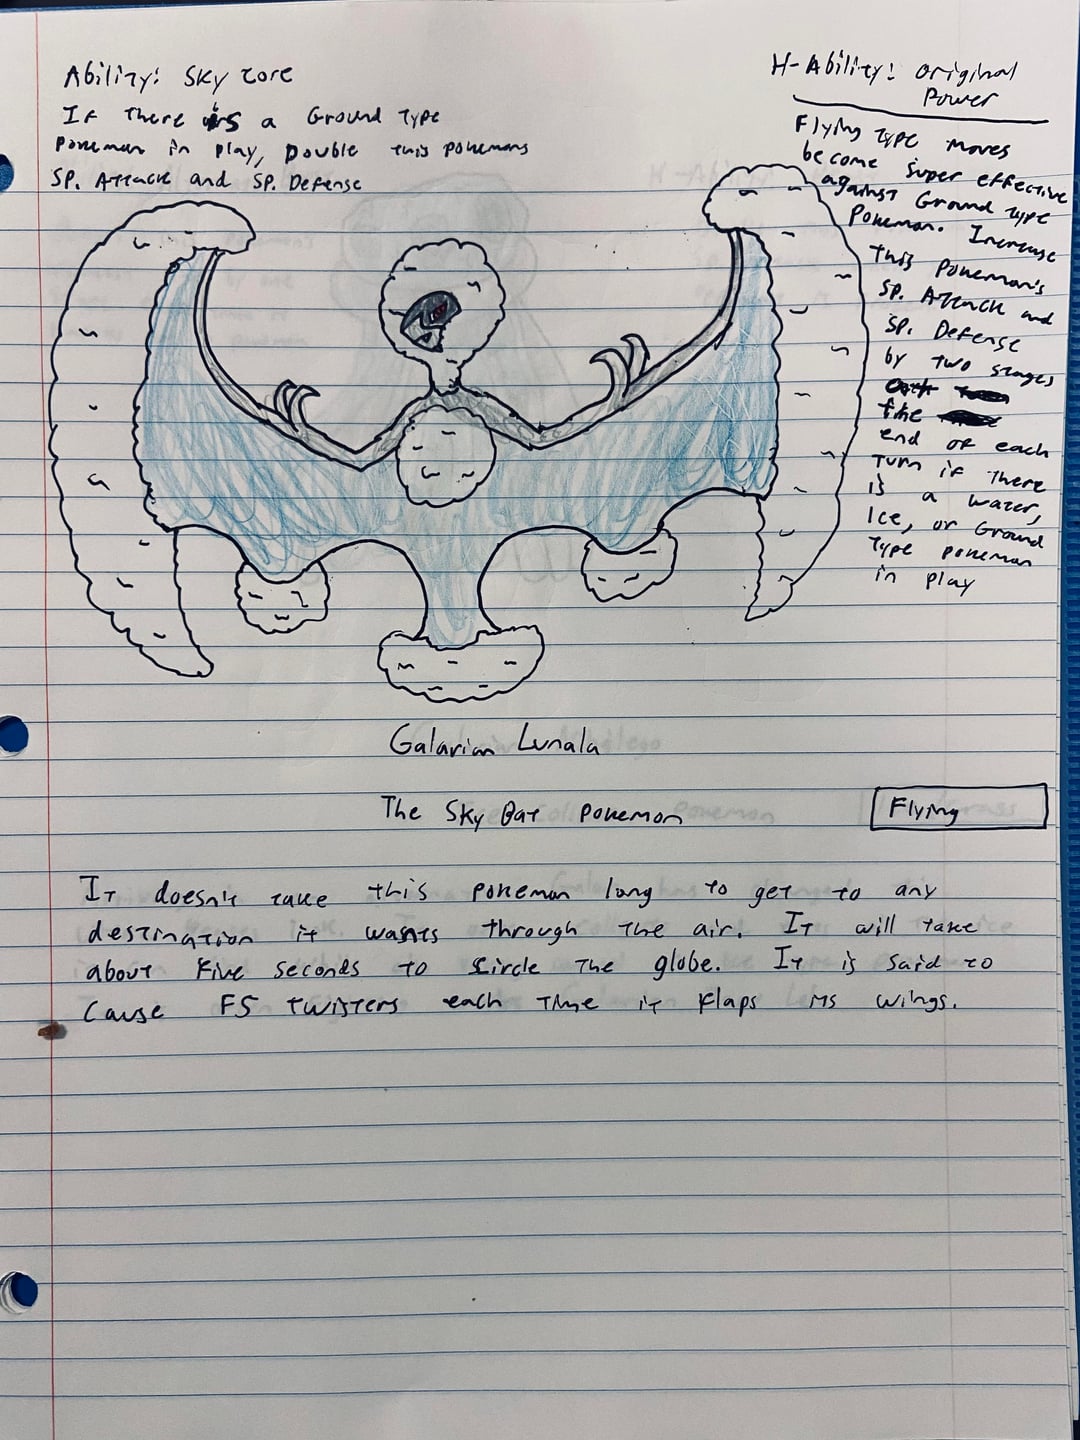 Ability: Sky Core
If there is a Ground Type
Pokemon in play, Double this pokemons
SP. Attack and SP. Defense
H-Ability: Original
Power
Flying type moves
become super effective
against Ground type
Pokemon. Increase
this Pokemon's
SP. Attack and
SP. Defense
by two stages
the
end of each
turn if there
is a water,
Ice, or Ground
Type pokemon
in play
Galarian Lunala
The Sky Bat Pokemon
Flying
It doesn't take this pokemon long to get to any
destination it wants through the air. It will take
about five seconds to circle the globe. It is said to
cause F5 twisters each time it flaps its wings.